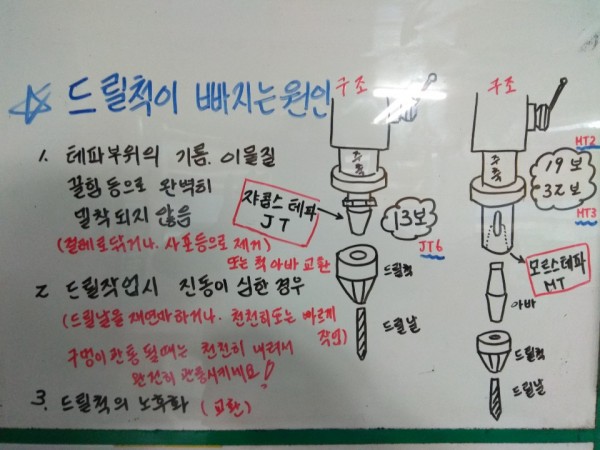 ☆ 드릴척이 빠지는 원인
1. 테파부위의 기름. 이물질
끌힘 등으로 완벽히
밀착되지 않음
(걸레로 닦거나. 사포등으로 제거)
또는 척 아바 교환
2. 드릴작업시 진동이 심한 경우
(드릴날을 재연마하거나. 천천히 또는 빠르게
작업)
구멍이 관통 될때는 천천히 내려서
완전히 관통시키세요!
3. 드릴척의 노후화 (교환)
구조
주축
쟈콥스 테파
JT
13보
JT6
드릴척
드릴날
구조
주축
MT2
19보
32보
MT3
모르스테파
MT
아바
드릴척
드릴날